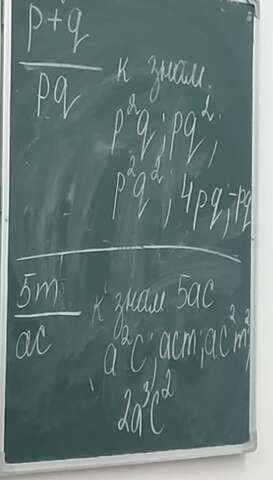 p+q
pq
к знам.
p²q; pq²;
p²q²; 4pq; -pq
5m
ac
к знам 5ac
a²c; acm; ac²m²;
2a³c²